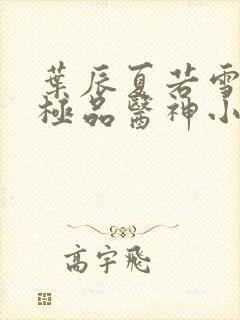 葉辰夏若雪
極品醫神小
高宇飛